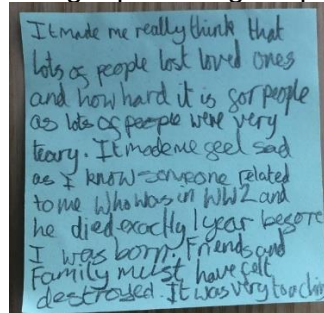 It made me really think that
lots of people lost loved ones
and how hard it is for people
as lots of people were very
teary. It made me feel sad
as I know someone related
to me who was in WW2 and
he died exactly 1 year before
I was born. Friends and
Family must have felt
destroyed. It was very